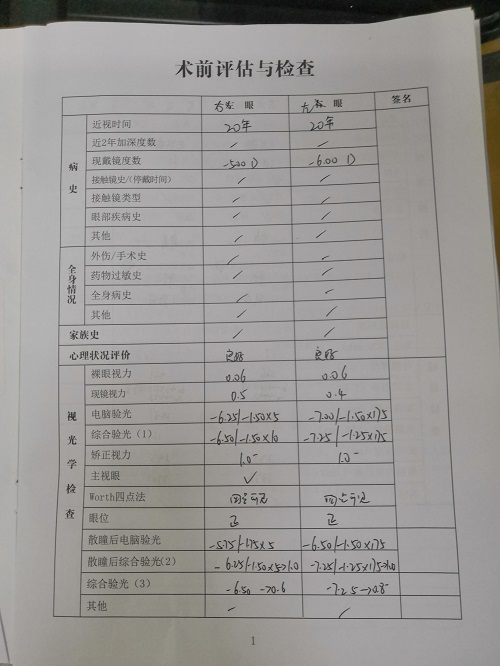 术前评估与检查
右 眼 左 眼 签名
病史
近视时间 20年 20年
近2年加深度数 / /
现戴镜度数 -5.00 D -6.00 D
接触镜史/(停戴时间) / /
接触镜类型 / /
眼部疾病史 / /
其他 / /
全身情况
外伤/手术史 / /
药物过敏史 / /
全身病史 / /
其他 / /
家族史 / /
心理状况评价 良好 良好
视光学检查
裸眼视力 0.06 0.06
现镜视力 0.5 0.4
电脑验光 -6.25/-1.50×5 -7.00/-1.50×175
综合验光（1） -6.50/-1.50×10 -7.25/-1.25×175
矫正视力 1.0⁻ 1.0⁻
主视眼 ✓
Worth四点法
眼位 正 正
散瞳后电脑验光 -5.75/-1.75×5 -6.50/-1.50×175
散瞳后综合验光(2) -6.25/-1.50×5→1.0 -7.25/-1.25×175→1.0
综合验光（3） -6.50→0.6 -7.25→0.8⁻
其他 / /
1